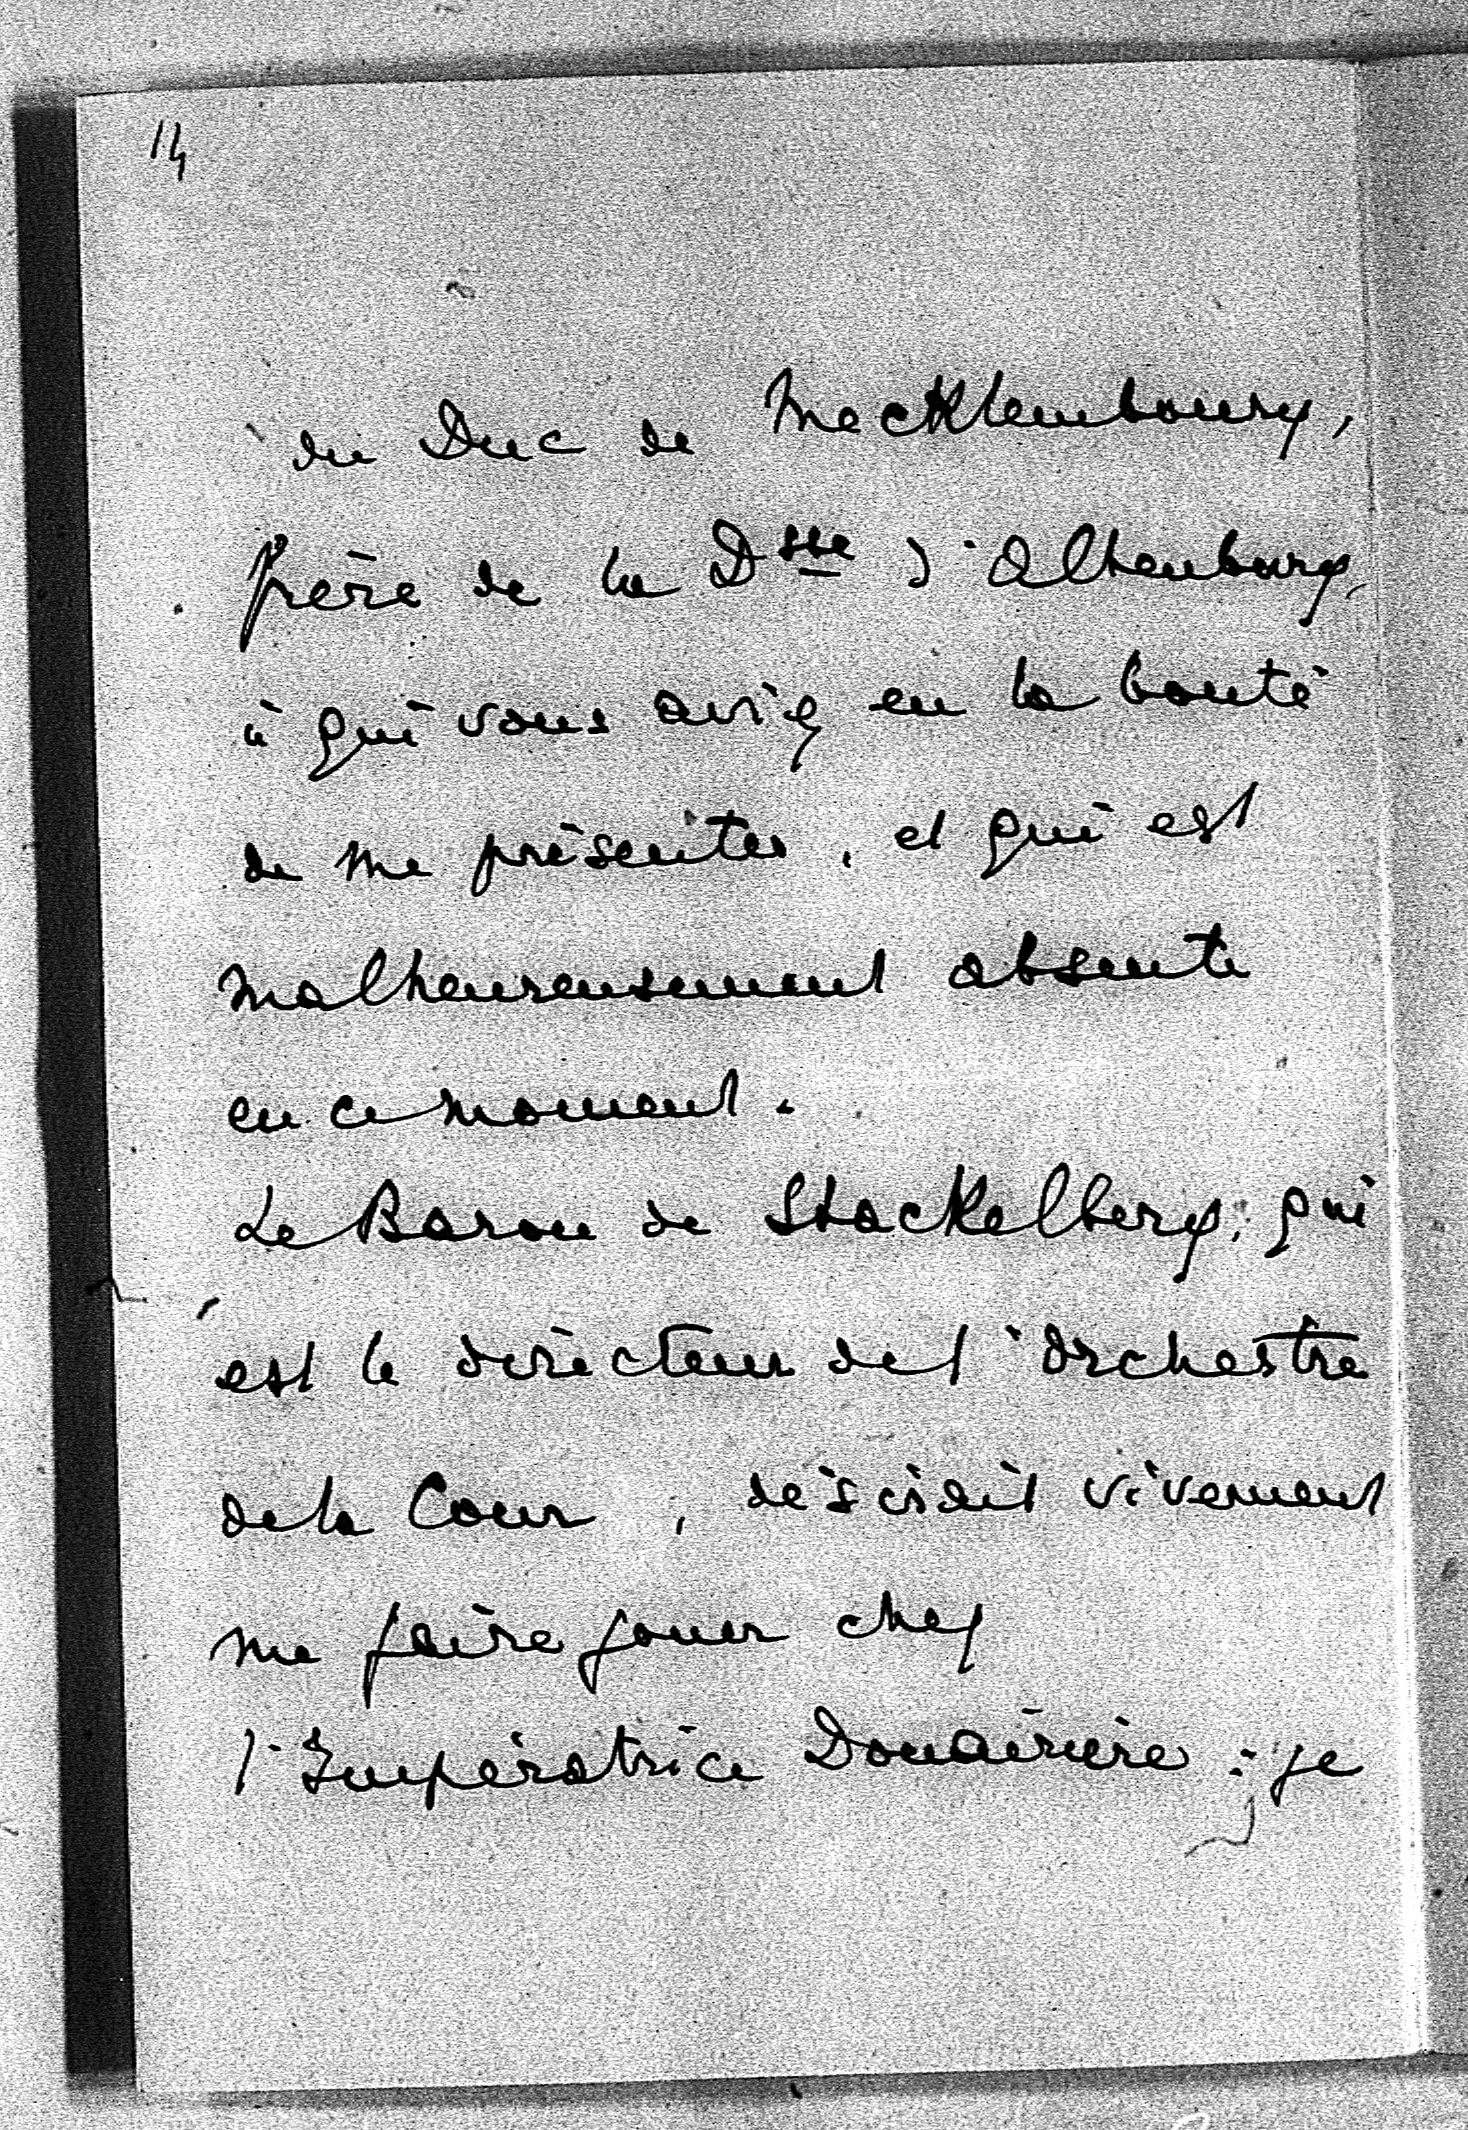 14
du Duc de Mecklembourg,
frère de la Dsse d'Altenbourg,
à qui vous aviez eu la bonté
de me présenter, et qui est
malheureusement absente
en ce moment.
Le Baron de Stackelberg, qui
est le directeur de l'Orchestre
de la Cour, désirait vivement
me faire jouer chez
l'Impératrice Douairière : je